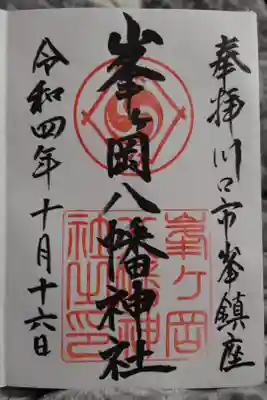 奉拝 川口市峯鎮座
峯ヶ岡八幡神社
令和四年十月十六日
峯ヶ岡
八幡神
社之印